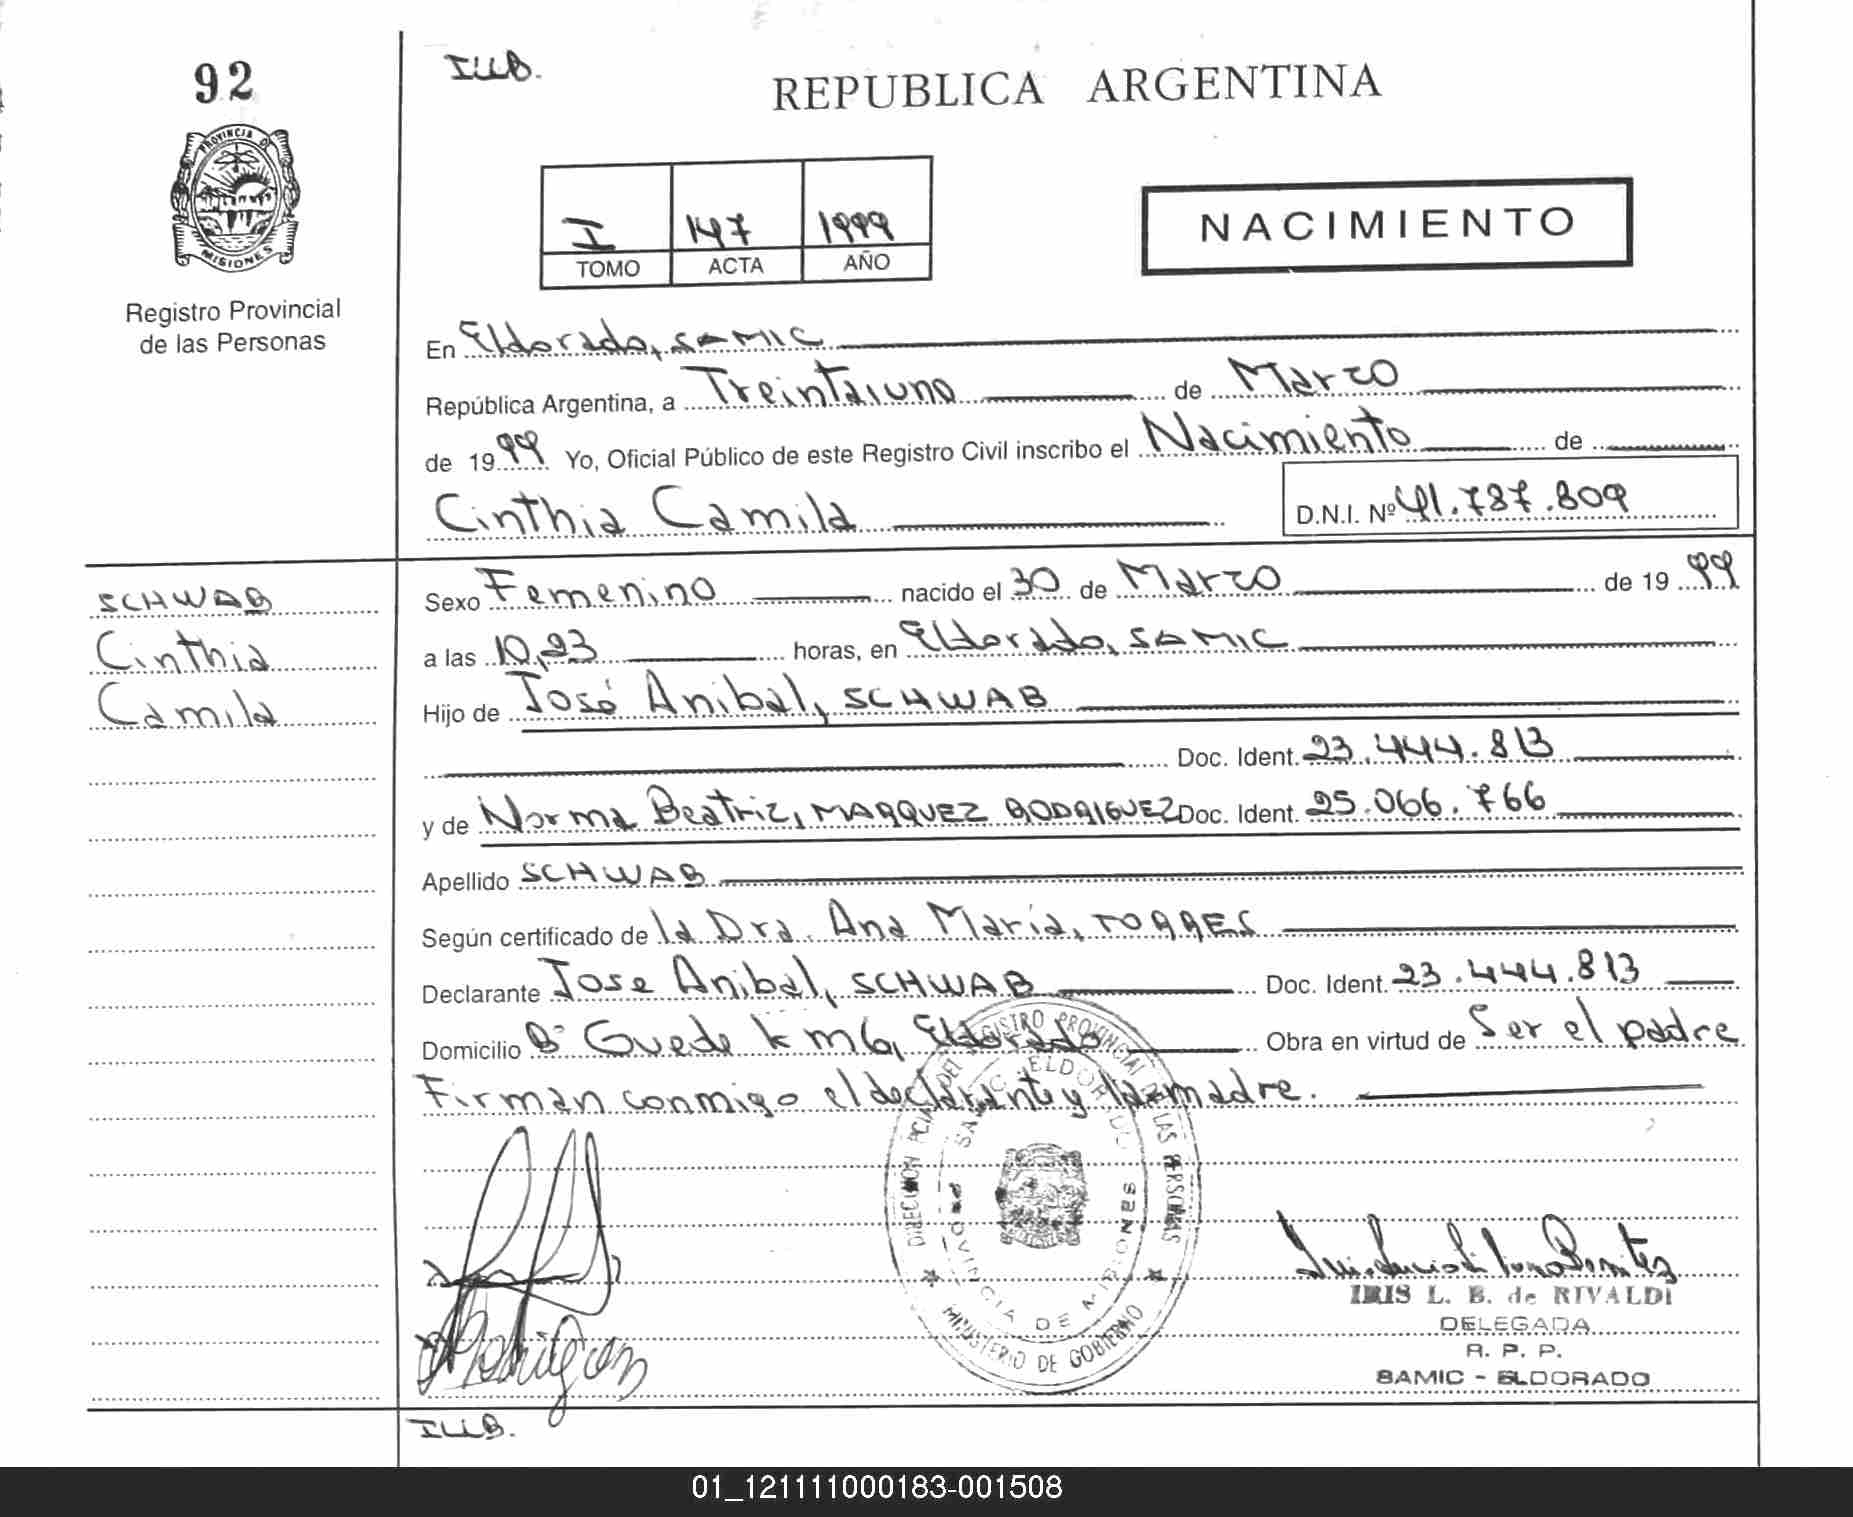 92
ILLB.
REPUBLICA ARGENTINA
PROVINCIA D
MISIONES
Registro Provincial
de las Personas
I 147 1999
TOMO ACTA AÑO
NACIMIENTO
En Eldorado, SAMIC
República Argentina, a Treintaiuno de Marzo
de 1999 Yo, Oficial Público de este Registro Civil inscribo el Nacimiento de
Cinthia Camila D.N.I. Nº 41.787.809
SCHWAB
Cinthia
Camila
Sexo Femenino nacido el 30 de Marzo de 1999
a las 10,23 horas, en Eldorado, SAMIC
Hijo de José Anibal, SCHWAB
Doc. Ident. 23.444.813
y de Norma Beatriz, MARQUEZ RODRIGUEZ Doc. Ident. 25.066.766
Apellido SCHWAB
Según certificado de la Dra. Ana María, TORRES
Declarante Jose Anibal, SCHWAB Doc. Ident. 23.444.813
Domicilio Bº Guede km 6, Eldorado Obra en virtud de Ser el padre
Firman conmigo el declarante y la madre.
DIRECCION PCIAL DEL REGISTRO PROVINCIAL DE LAS PERSONAS
SAMIC - ELDORADO
PROVINCIA DE MISIONES
MINISTERIO DE GOBIERNO
IRIS L. B. de RIVALDI
DELEGADA
R. P. P.
SAMIC - ELDORADO
ILLB.
01_121111000183-001508